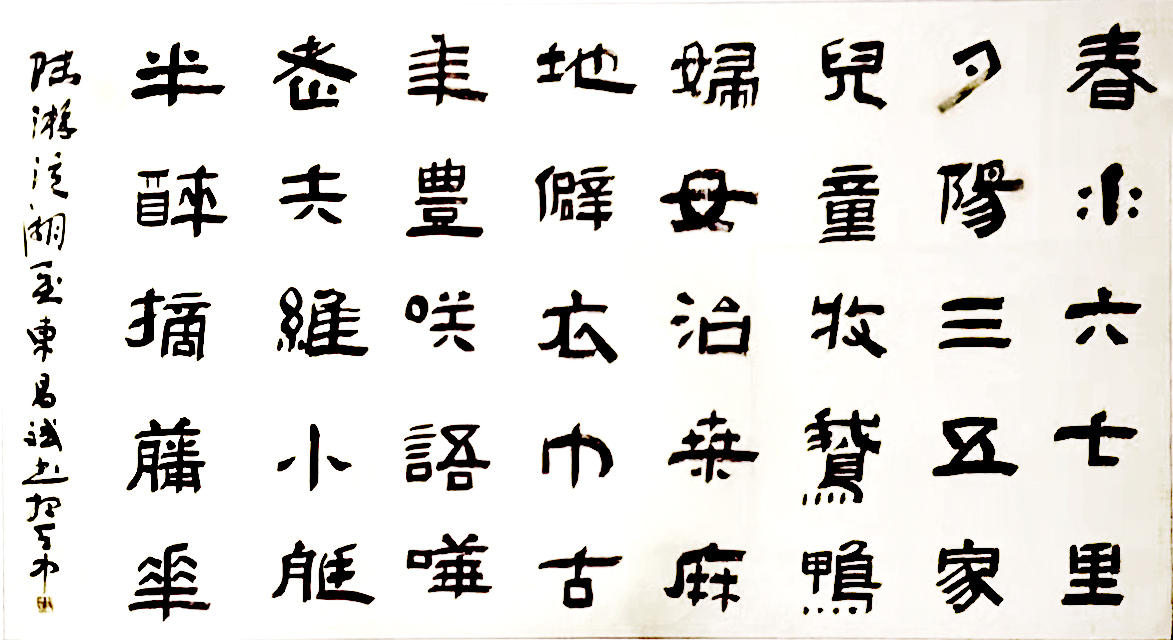 春水六七里
夕陽三五家
兒童牧鵞鴨
婦女治桒麻
地僻衣巾古
年豊咲語嘩
老夫維小艇
半醉摘藤華
陸游泛湖至東昌誠书